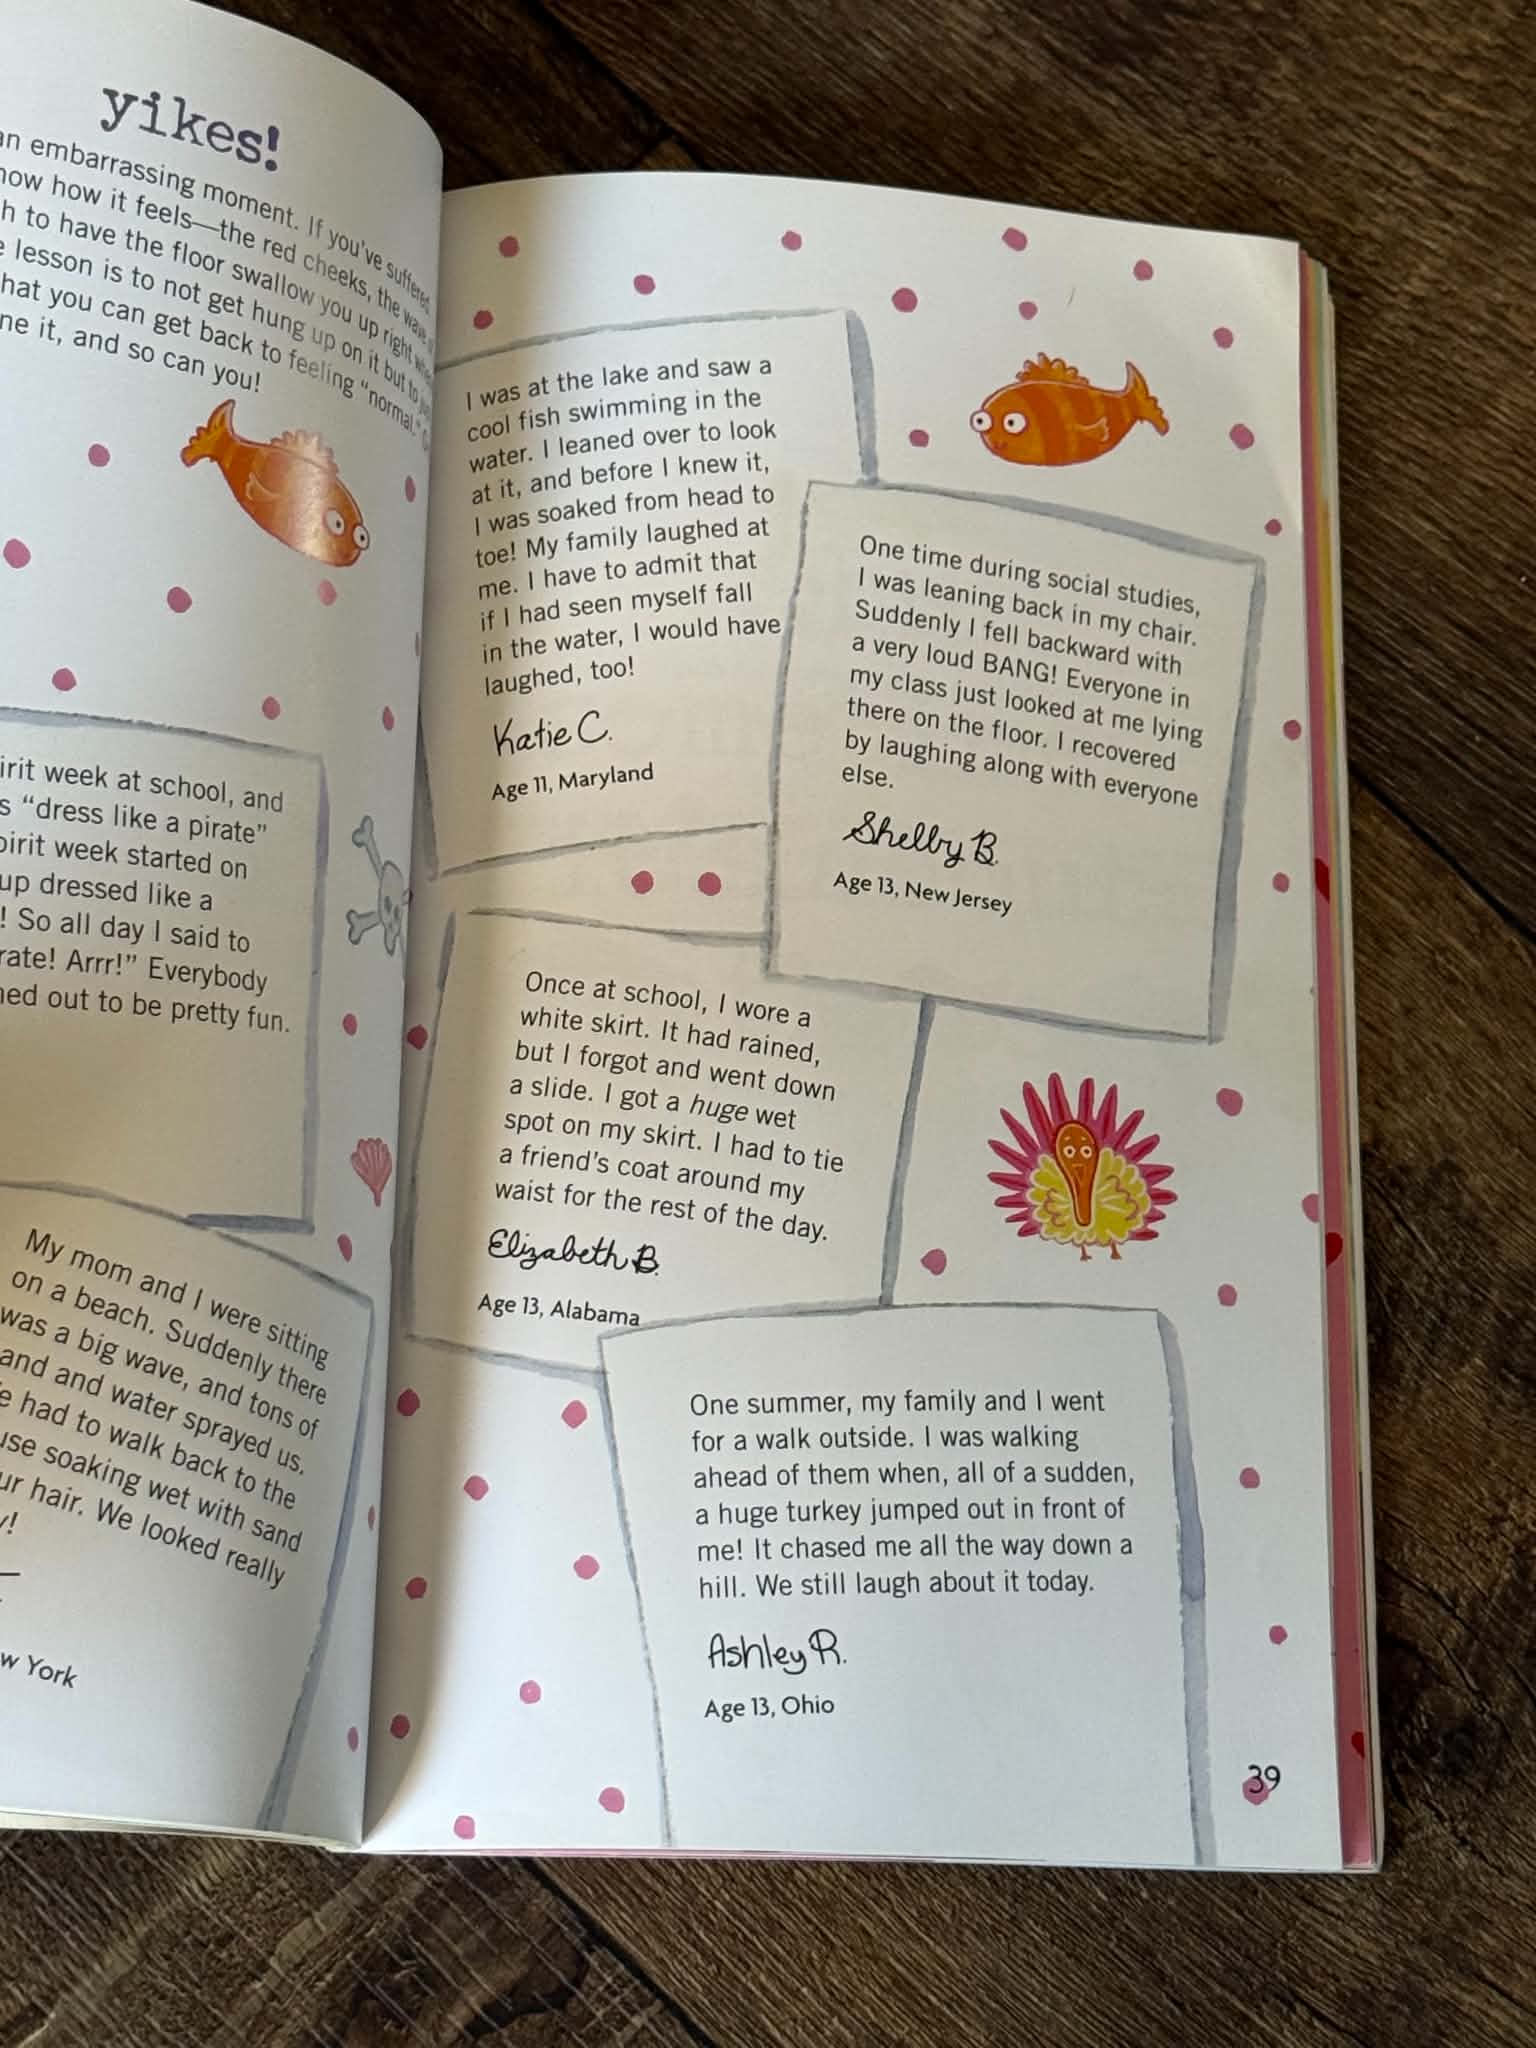 yikes!
an embarrassing moment. If you've suffered
how it feels—the red cheeks, the wave
to have the floor swallow you up right
lesson is to not get hung up on it but to
that you can get back to feeling "normal."
it, and so can you!
week at school, and
"dress like a pirate"
week started on
up dressed like a
! So all day I said to
Arrr!" Everybody
out to be pretty fun.
My mom and I were sitting
on a beach. Suddenly there
was a big wave, and tons of
and water sprayed us.
had to walk back to the
soaking wet with sand
hair. We looked really
York
I was at the lake and saw a
cool fish swimming in the
water. I leaned over to look
at it, and before I knew it,
I was soaked from head to
toe! My family laughed at
me. I have to admit that
if I had seen myself fall
in the water, I would have
laughed, too!
Katie C.
Age 11, Maryland
One time during social studies,
I was leaning back in my chair.
Suddenly I fell backward with
a very loud BANG! Everyone in
my class just looked at me lying
there on the floor. I recovered
by laughing along with everyone
else.
Shelby B.
Age 13, New Jersey
Once at school, I wore a
white skirt. It had rained,
but I forgot and went down
a slide. I got a huge wet
spot on my skirt. I had to tie
a friend's coat around my
waist for the rest of the day.
Elizabeth B.
Age 13, Alabama
One summer, my family and I went
for a walk outside. I was walking
ahead of them when, all of a sudden,
a huge turkey jumped out in front of
me! It chased me all the way down a
hill. We still laugh about it today.
Ashley R.
Age 13, Ohio
39